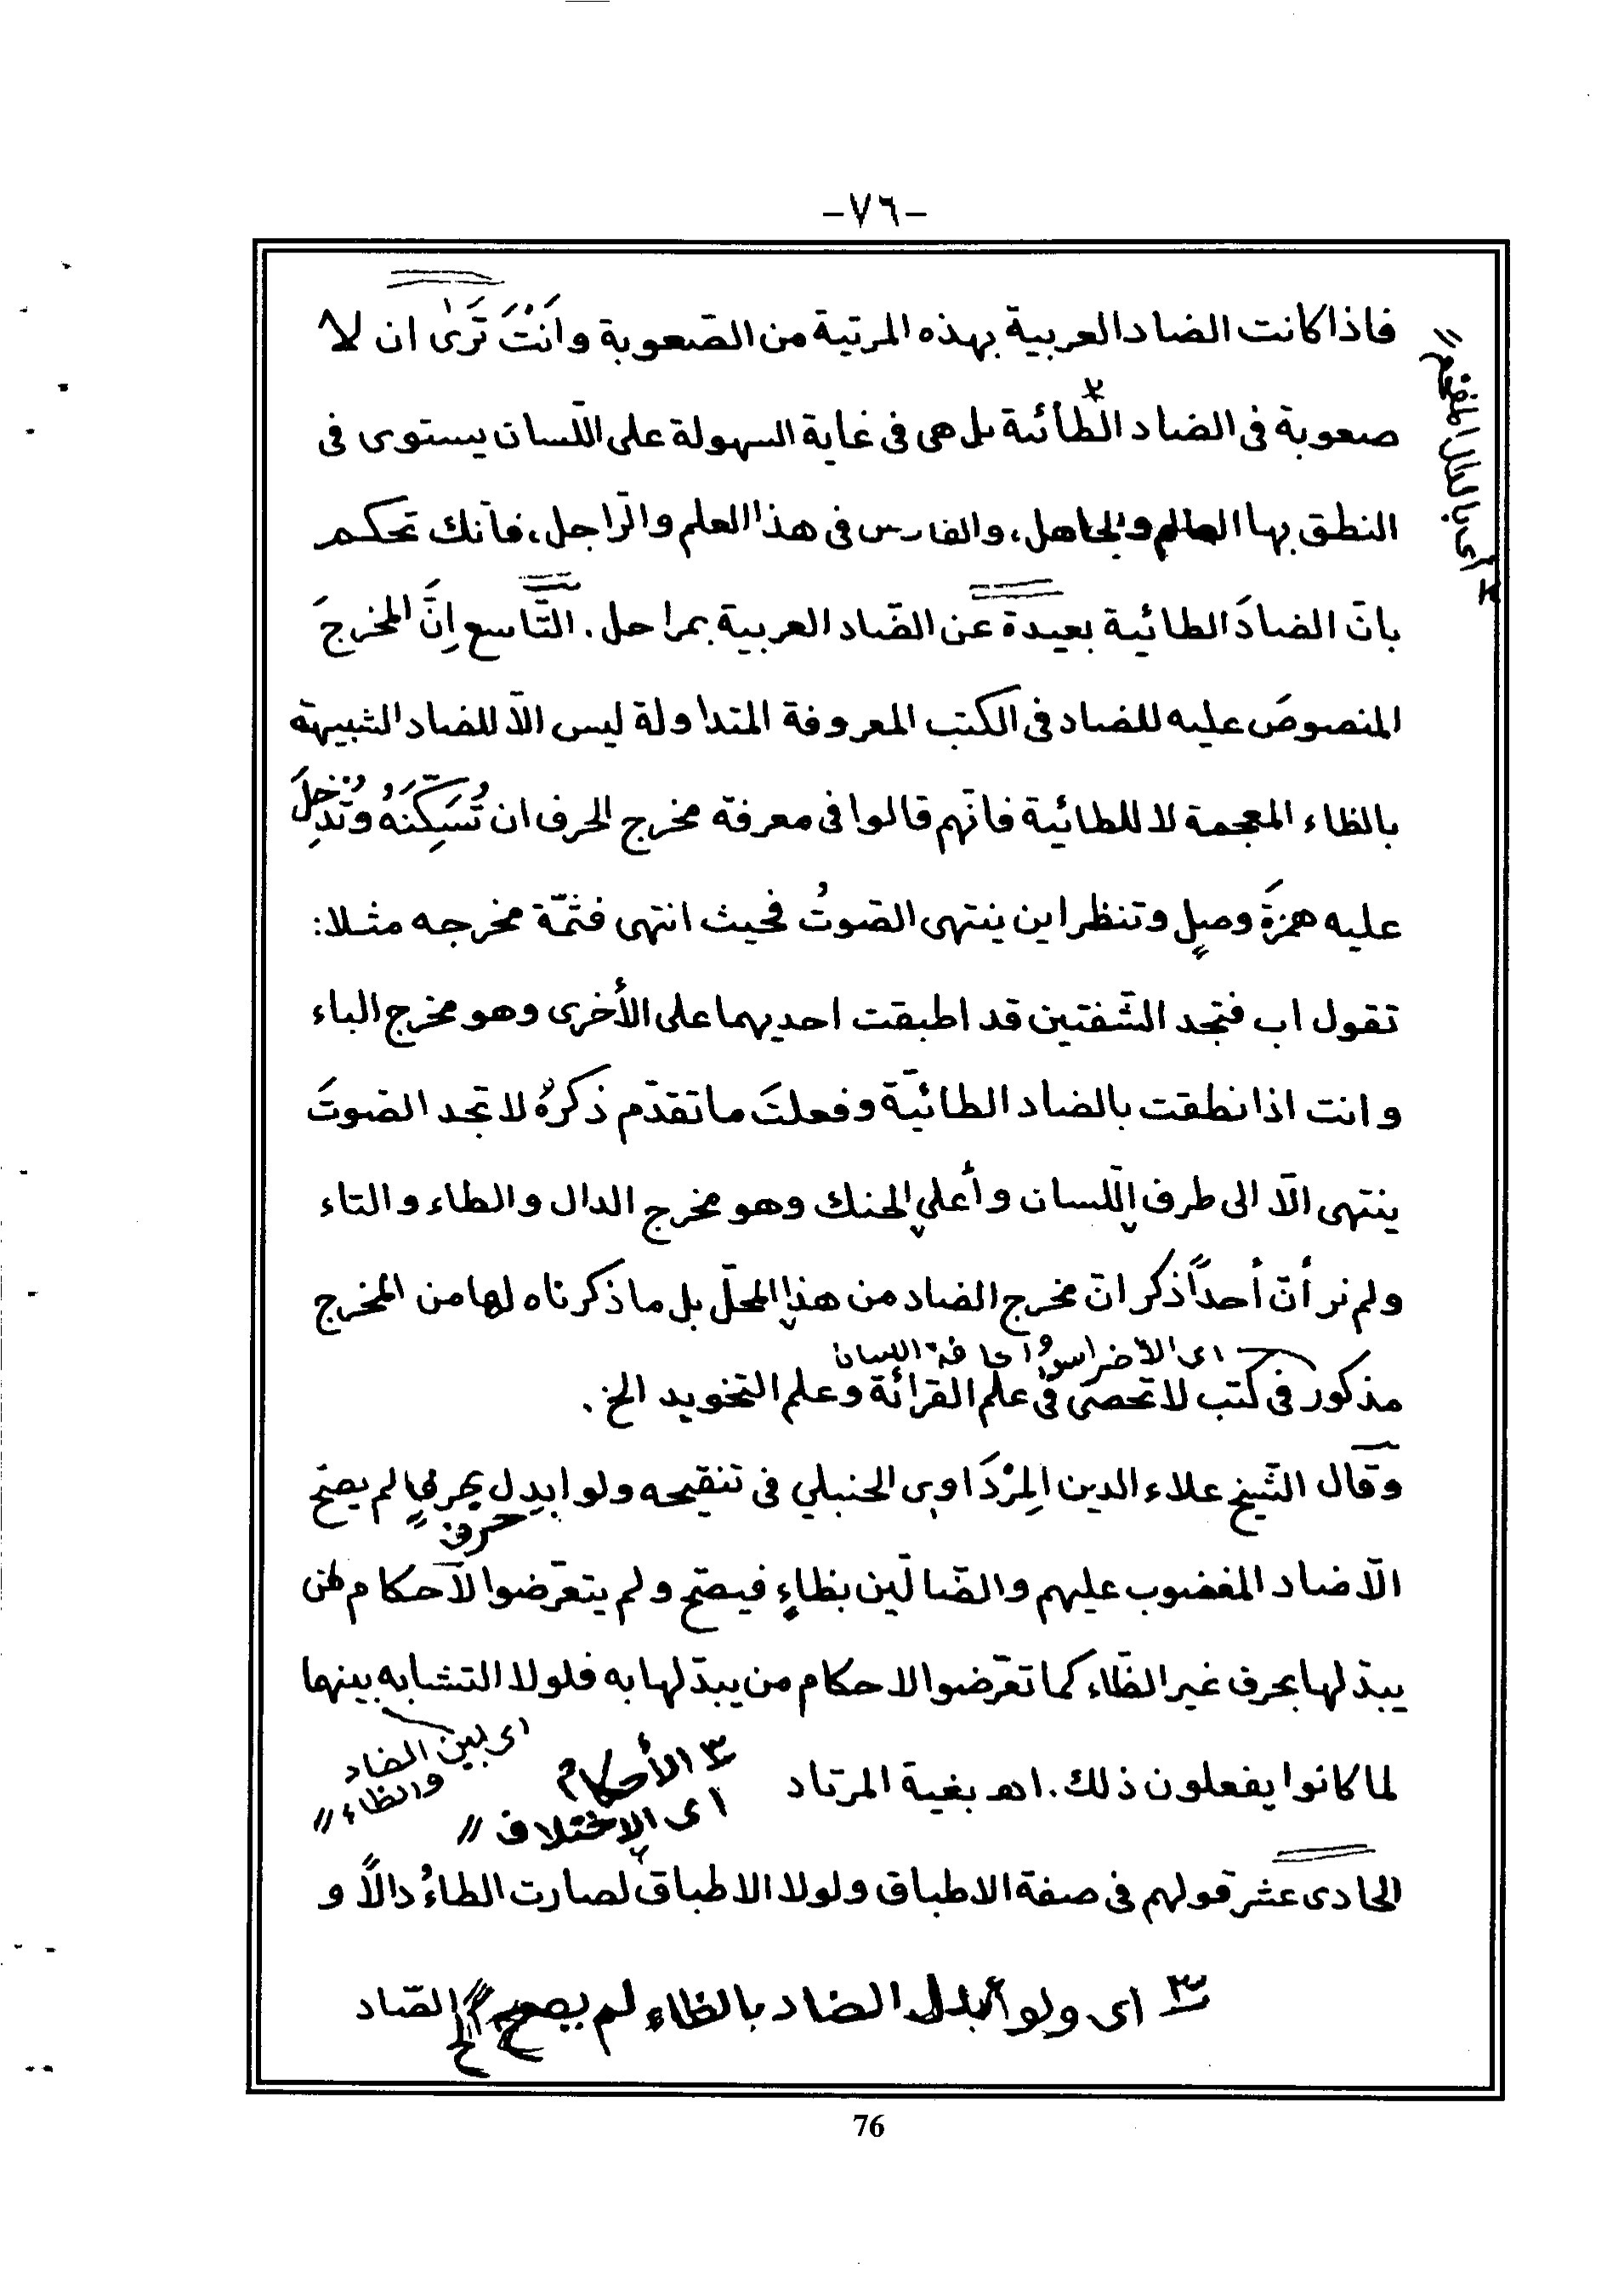 -٧٦-
فاذا كانت الضاد العربية بهذه المرتبة من الصّعوبة وَانْتَ تَرٰى ان لا
صعوبة فى الضاد الطّائية بل هى فى غاية السهولة على اللّسان يستوى فى
النطق بها العالم والجاهل، والفارس فى هذا العلم والرّاجل، فانّك تحكم
بانّ الضادَ الطائية بعيدة عن الضّاد العربية بمراحل. التّاسع اِنَّ المخرجَ
المنصوصَ عليه للضاد فى الكتب المعروفة المتداولة ليس الاّ للضاد الشبيهة
بالظاء المعجمة لا للطائية فانّهم قالوا فى معرفة مخرج الحرف ان تُسَكِّنَهُ وتُدْخِلَ
عليه همزةَ وصلٍ وتنظر اين ينتهى الصّوتُ فحيث انتهى فثمّة مخرجه مثلا:
تقول اب فتجد الشّفتين قد اطبقت احديهما على الأخرى وهو مخرج الباء
وانت اذا نطقت بالضاد الطائيّة وفعلتَ ما تقدّم ذكرهُ لا تجد الصّوتَ
ينتهى الاّ الى طرف اللّسان وأعلي الحنك وهو مخرج الدال والطاء والتاء
ولم نر أنّ أحداً ذكر انّ مخرج الضاد من هذا المحلّ بل ما ذكرناه لها من المخرج
اى الاضراس وحافة اللسان
مذكور فى كتب لا تحصى فى علم القرائة وعلم التجويد الخ.
وَقال الشّيخ علاء الدين المِرْدَاوى الحنبلي فى تنقيحه ولو ابدل حرفا بحرف لم يصحّ
الاّ ضاد المغضوب عليهم والضّالّين بظاءٍ فيصحّ ولم يتعرّضوا لأحكام من
يبدّلها بحرف غير الظّاء كما تعرّضوا لاحكام من يبدّلها به فلولا التشابه بينهما
اى بين الضاد والظاء //
لما كانوا يفعلون ذلك. اهـ بغية المرتاد
٣ الأحكام
اى الاختلاف //
الحادى عشر قولهم فى صفة الاطباق ولولا الاطباق لصارت الطاءُ دالاً و
٣ اى ولو أبدل الضاد بالظاء لم يصح // الخ
الصّاد
٢ أى بالدال المفخم //
76